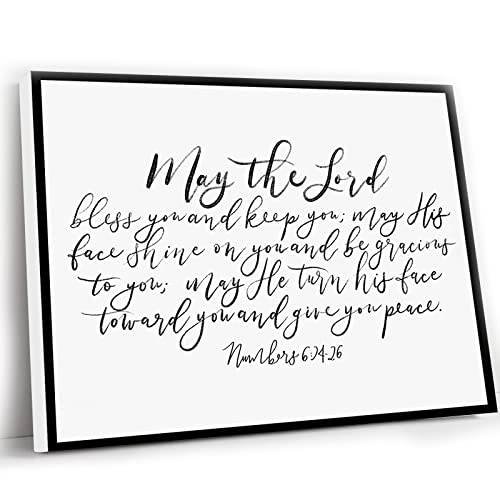 May the Lord
bless you and keep you; may His
face shine on you and be gracious
to you; may He turn his face
toward you and give you peace.
Numbers 6:24-26